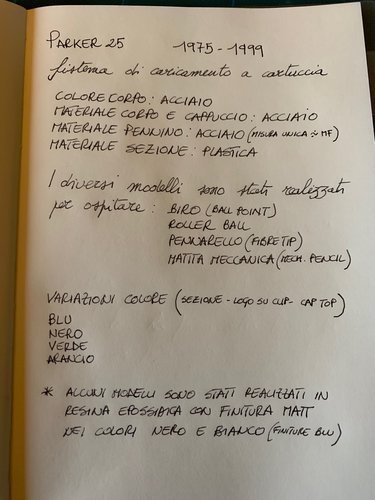 PARKER 25 1975-1999
Sistema di caricamento a cartuccia
COLORE CORPO: ACCIAIO
MATERIALE CORPO E CAPPUCCIO: ACCIAIO
MATERIALE PENNINO: ACCIAIO (MISURA UNICA ∻ MF)
MATERIALE SEZIONE: PLASTICA
I diversi modelli sono stati realizzati
per ospitare: BIRO (BALL POINT)
ROLLER BALL
PENNARELLO (FIBRETIP)
MATITA MECCANICA (MECH. PENCIL)
VARIAZIONI COLORE (SEZIONE - LOGO SU CLIP - CAP TOP)
BLU
NERO
VERDE
ARANCIO
* ALCUNI MODELLI SONO STATI REALIZZATI IN
RESINA EPOSSIDICA CON FINITURA MATT
NEI COLORI NERO E BIANCO (FINITURE BLU)